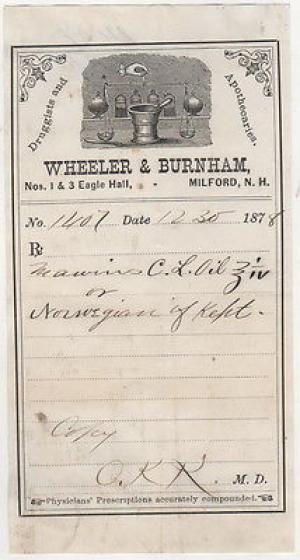 Druggists and Apothecaries.
WHEELER & BURNHAM,
Nos. 1 & 3 Eagle Hall, MILFORD, N. H.
No. 1407 Date 12 30 1878
℞
C. L. Oil ℥iv
or
Norwegian if Kept.
Copy
O. K. R. M. D.
Physicians' Prescriptions accurately compounded.